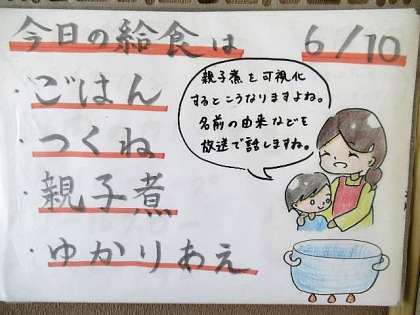 今日の給食は 6/10
・ごはん
・つくね
・親子煮
・ゆかりあえ
親子煮を可視化
するとこうなりますよね。
名前の由来などを
放送で話しますね。